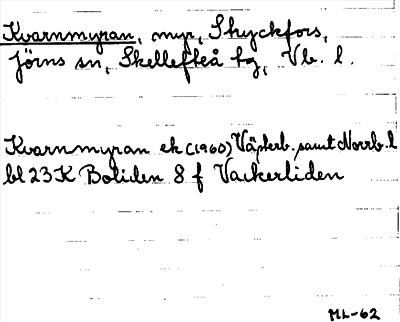 Kvarnmyran, myr, Skyckfors,
Jörns sn, Skellefteå tg, Vb. l.
Kvarnmyran ek (1960) Västerb. samt Norrb. l
bl 23 K Boliden 8 f Vackerliden
ML-62